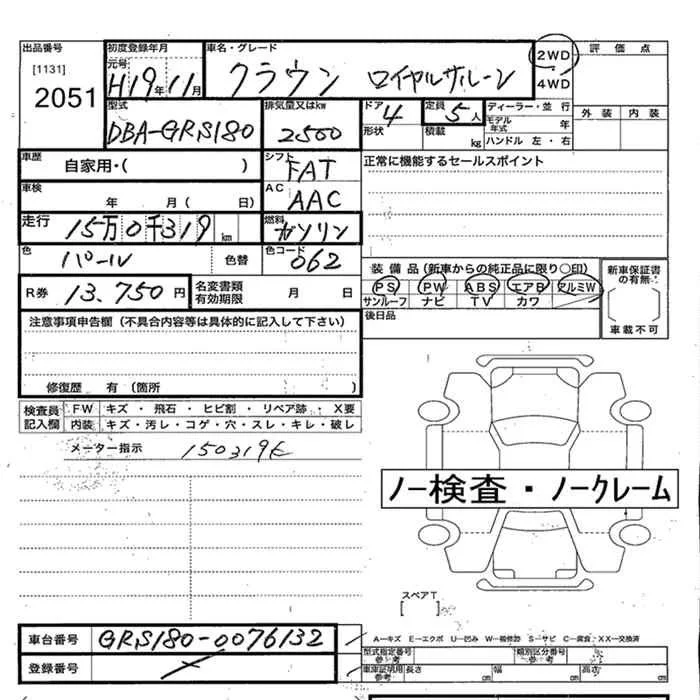 出品番号 初度登録年月 車名・グレード 2WD 評価点
[1131] 元号
2051 H19年11月 クラウン ロイヤルサルーン 4WD
型式 排気量又はkw ドア 定員 ディーラー・並行 外装 内装
DBA-GRS180 2500 4 5人 モデル年式 年
形状 積載 kg ハンドル 左・右
車歴 自家用・( ) シフト FAT 正常に機能するセールスポイント
車検 年 月( 日) AC AAC
走行 15万0千319km 燃料 ガソリン
色 パール 色替 色コード 062
装備品(新車からの純正品に限り○印) 新車保証書の有無
R券 13.750円 名変書類有効期限 月 日
PS PW ABS エアB アルミW
サンルーフ ナビ TV カワ
注意事項申告欄(不具合内容等は具体的に記入して下さい) 後日品 車載不可
修復歴 有(箇所 )
検査員記入欄 FW キズ・飛石・ヒビ割・リペア跡・X要
内装 キズ・汚レ・コゲ・穴・スレ・キレ・破レ
メーター指示 150319K
ノー検査・ノークレーム
スペアT
[ ]
車台番号 GRS180-0076132 A-キズ E-エクボ U-凹み W-補修跡 S-サビ C-腐食 XX-交換済
型式指定番号参考 類別区分番号参考
登録番号 車庫証明用参考 長さ cm 幅 cm 高さ cm